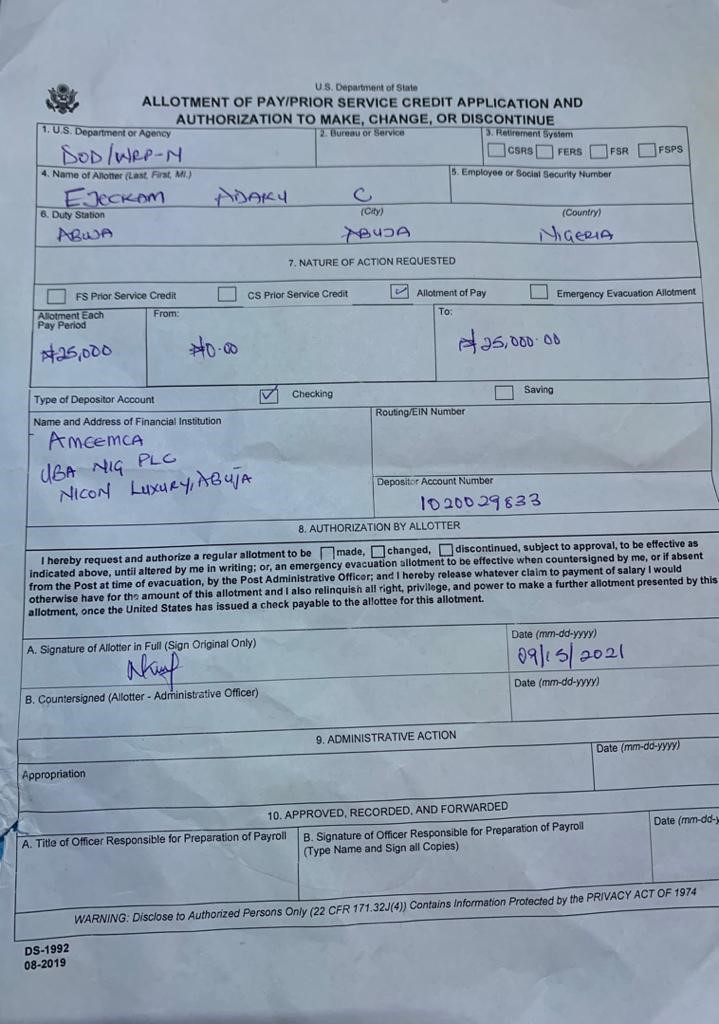 U.S. Department of State
ALLOTMENT OF PAY/PRIOR SERVICE CREDIT APPLICATION AND
AUTHORIZATION TO MAKE, CHANGE, OR DISCONTINUE
1. U.S. Department or Agency
DOD/WRP-N
2. Bureau or Service
3. Retirement System
CSRS FERS FSR FSPS
4. Name of Allotter (Last, First, MI.)
EJECKAM ADAKU C
5. Employee or Social Security Number
6. Duty Station (City) (Country)
ABUJA ABUJA NIGERIA
7. NATURE OF ACTION REQUESTED
FS Prior Service Credit CS Prior Service Credit Allotment of Pay Emergency Evacuation Allotment
Allotment Each
Pay Period
₦25,000
From:
₦0.00
To:
₦25,000.00
Type of Depositor Account Checking Saving
Name and Address of Financial Institution
AMCEMCA
UBA NIG PLC
NICON LUXURY, ABUJA
Routing/EIN Number
Depositor Account Number
1020029833
8. AUTHORIZATION BY ALLOTTER
I hereby request and authorize a regular allotment to be made, changed, discontinued, subject to approval, to be effective as
indicated above, until altered by me in writing; or, an emergency evacuation allotment to be effective when countersigned by me, or if absent
from the Post at time of evacuation, by the Post Administrative Officer; and I hereby release whatever claim to payment of salary I would
otherwise have for the amount of this allotment and I also relinquish all right, privilege, and power to make a further allotment presented by this
allotment, once the United States has issued a check payable to the allottee for this allotment.
A. Signature of Allotter in Full (Sign Original Only)
Date (mm-dd-yyyy)
09/15/2021
B. Countersigned (Allotter - Administrative Officer)
Date (mm-dd-yyyy)
9. ADMINISTRATIVE ACTION
Appropriation
Date (mm-dd-yyyy)
10. APPROVED, RECORDED, AND FORWARDED
A. Title of Officer Responsible for Preparation of Payroll
B. Signature of Officer Responsible for Preparation of Payroll
(Type Name and Sign all Copies)
Date (mm-dd-y
WARNING: Disclose to Authorized Persons Only (22 CFR 171.32J(4)) Contains Information Protected by the PRIVACY ACT OF 1974
DS-1992
08-2019